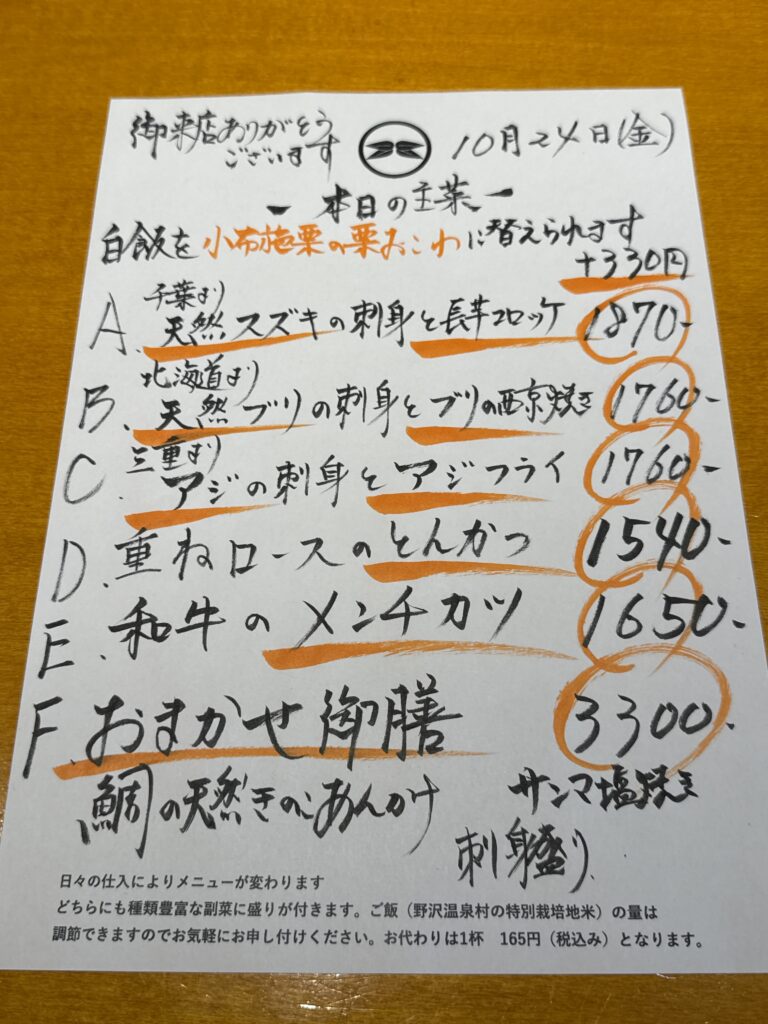 御来店ありがとう
ございます
10月24日(金)
ー 本日の主菜 ー
白飯を小布施栗の栗おこわに替えられます
+330円
千葉より
A. 天然スズキの刺身と長芋コロッケ 1870-
北海道より
B. 天然ブリの刺身とブリの西京焼き 1760-
三重より
C. アジの刺身とアジフライ 1760-
D. 重ねロースのとんかつ 1540-
E. 和牛のメンチカツ 1650-
F. おまかせ御膳 3300-
鯛の天然きのこあんかけ サンマ塩焼き
刺身盛り
日々の仕入によりメニューが変わります
どちらにも種類豊富な副菜に盛りが付きます。ご飯（野沢温泉村の特別栽培地米）の量は
調節できますのでお気軽にお申し付けください。お代わりは1杯　165円（税込み）となります。